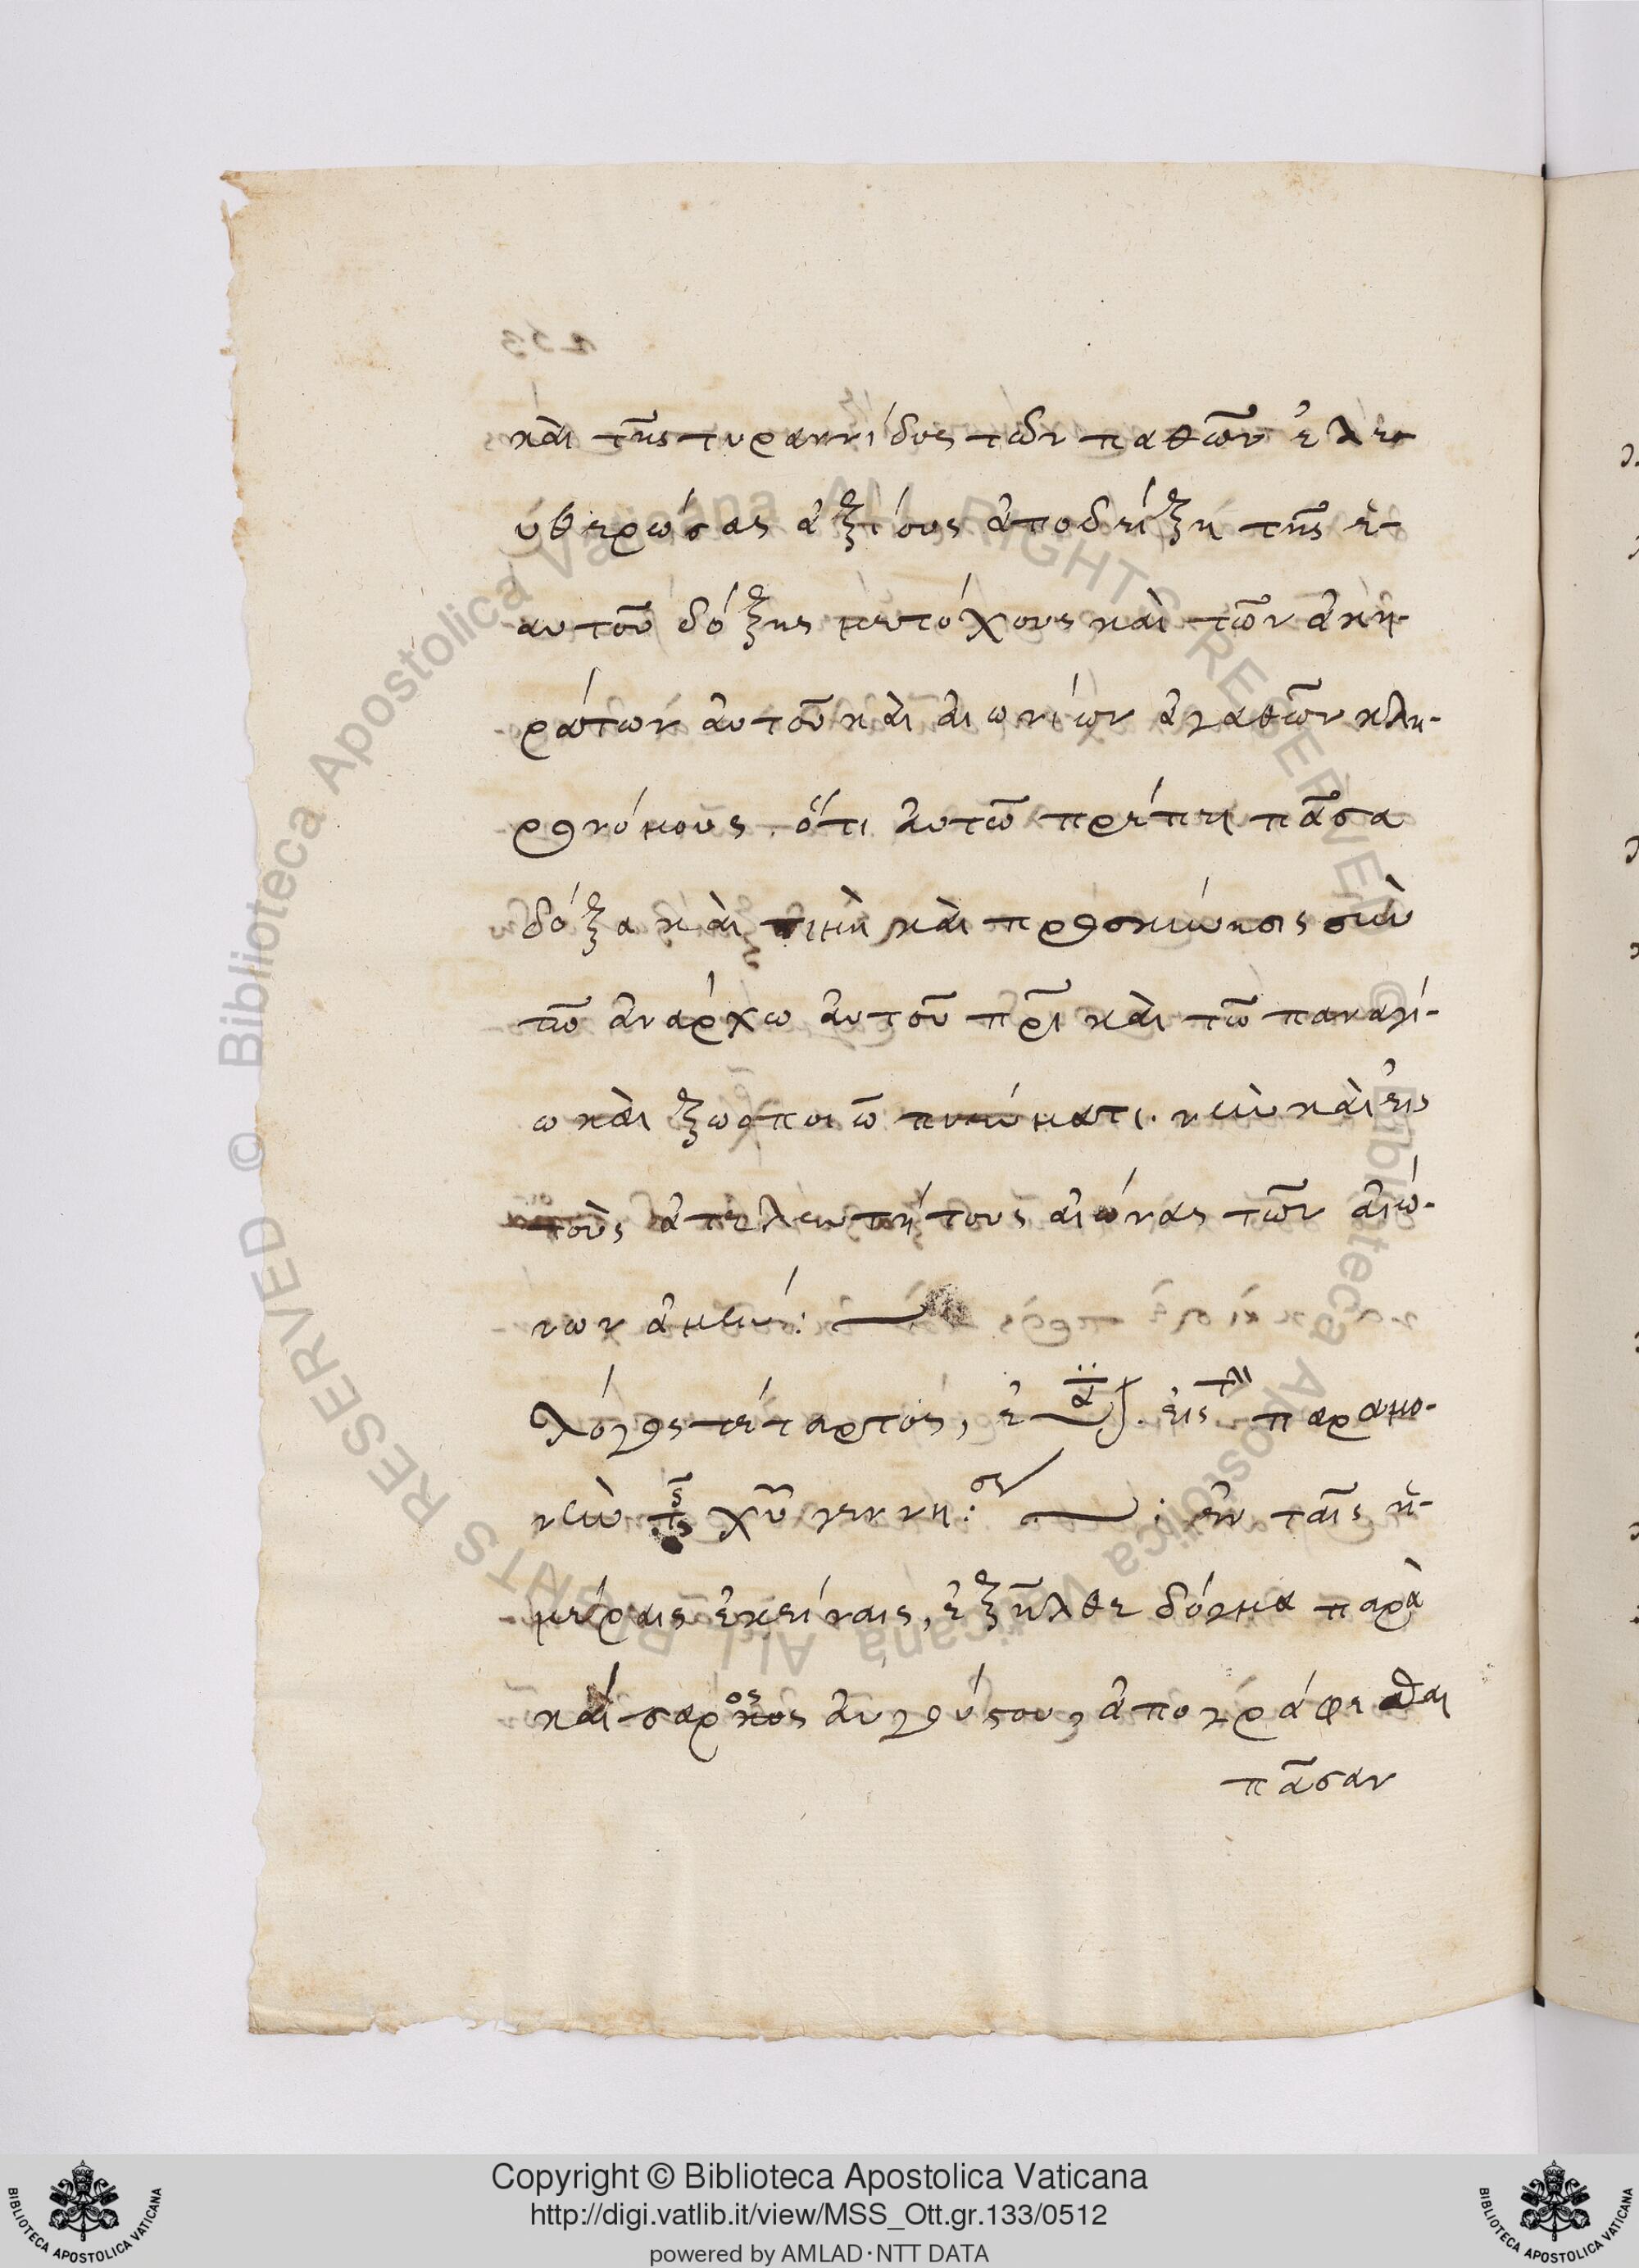 καὶ τῆς τυραννίδος τῶν παθῶν ἐλε-
υθερώσας ἀξίους ἀποδείξῃ τῆς ἑ-
αυτοῦ δόξης μετόχους καὶ τῶν ἀκη-
ράτων αὐτοῦ καὶ αἰωνίων ἀγαθῶν κλη-
ρονόμους. ὅτι αὐτῶ πρέπει πᾶσα
δόξα καὶ τιμὴ καὶ προσκύνησις σὺν
τῶ ἀνάρχω αὐτοῦ πρῒ καὶ τῶ παναγί-
ω καὶ ζωοποιῶ πνεύματι. νῦν καὶ εἰς
τοὺς ἀτελευτήτους αἰώνας τῶν αἰώ-
νων ἀμήν:
λόγος τέταρτος, εἰς τὴν παραμο-
νὴν τῆς χῦ γεννή: σε : ἐν ταῖς ἡ-
μέραις ἐκείναις, ἐξῆλθε δόγμα παρὰ
καίσαρος αὐγούστου, ἀπογράφεσθαι
πᾶσαν
Copyright © Biblioteca Apostolica Vaticana
http://digi.vatlib.it/view/MSS_Ott.gr.133/0512
powered by AMLAD·NTT DATA
BIBLIOTECA APOSTOLICA VATICANA
BIBLIOTECA APOSTOLICA VATICANA
© Biblioteca Apostolica Vaticana ALL RIGHTS RESERVED
© Biblioteca Apostolica Vaticana ALL RIGHTS RESERVED